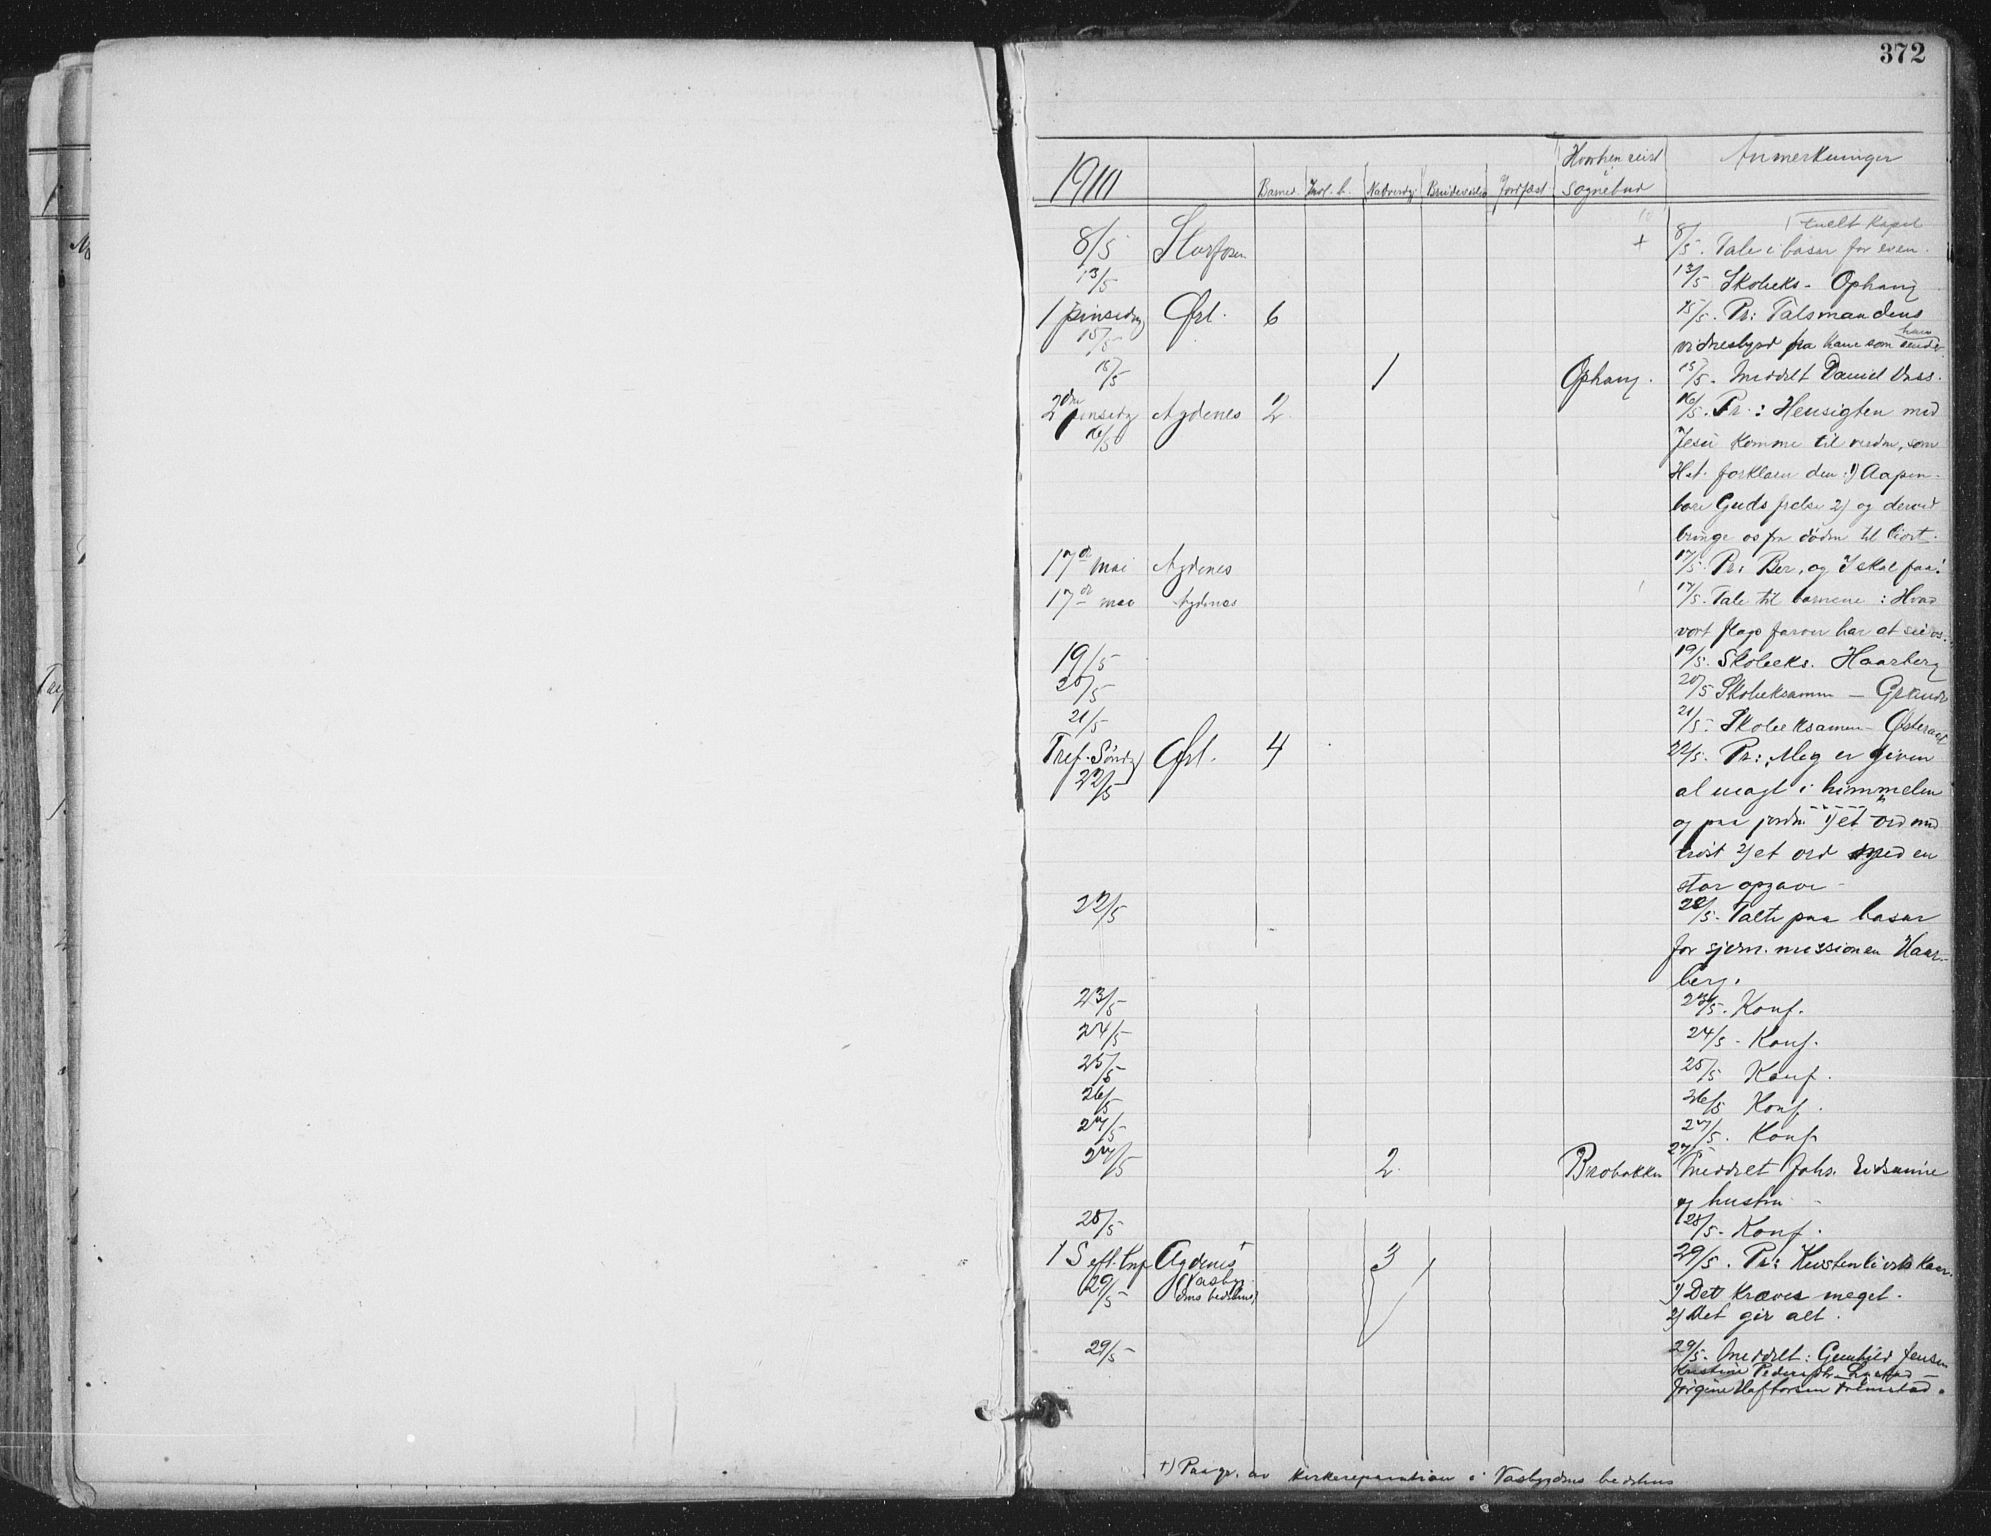 372
1910 Barned. Nadverdg. Jordfæst. Hvorhen reist i sognebud Anmerkninger
8/5 Storfosen + 8/5. Tale i basar for even-
tuelt kapel
13/5 13/5 Skoleeks- Ophaug
1 pinsedag Ørl. 6 15/5. Pr: Talsmandens
15/5 vidnesbyrd fra ham som sender ham
15/5 1 Ophaug. 15/5. Meddelt Daniel
2den pinsedag Agdenes 2 16/5. Pr: Hensigten med
16/5 Jesu komme til verden, som
forklarer den: 1) Aapen-
bare Guds frelse 2) og derved
bringe os fra døden til livet.
17de mai Agdenes 17/5. Pr: Ber, og I skal faa!
17de mai Agdenes 17/5. Tale til barnene: Hvad
vort flags farver har at si os.
19/5 19/5. Skoleeks. Haarberg
20/5 20/5 Skoleeksamen — Grande
21/5 21/5. Skoleeksamen — Østeraat
Tref. Søndg Ørl. 4 22/5. Pr: Meg er given
22/5 al magt i himmelen
og paa jorden 1) et ord med
trøst 2) et ord med en
stor opgave -
22/5 22/5. Talte paa basar
for sjøm. missionen Haar-
berg.
23/5 23/5. Konf.
24/5 24/5 - Konf.
25/5 25/5 Konf.
26/5 26/5 Konf.
27/5 27/5. Konf.
27/5 2 Brobakken 27/5 Meddelt Johs.
og hustru -
28/5 28/5. Konf.
1 S eft. Agdenes + 3 29/5. Pr:
29/5 (Vasbyg-
dens bedehus) 1) Det kræves meget.
2) Det gir alt.
29/5 29/5. Meddelt: Gunhild Jensen
Kristine
Jørgine
+) Paa gr. av kirkereparation i Vasbygdens bedehus